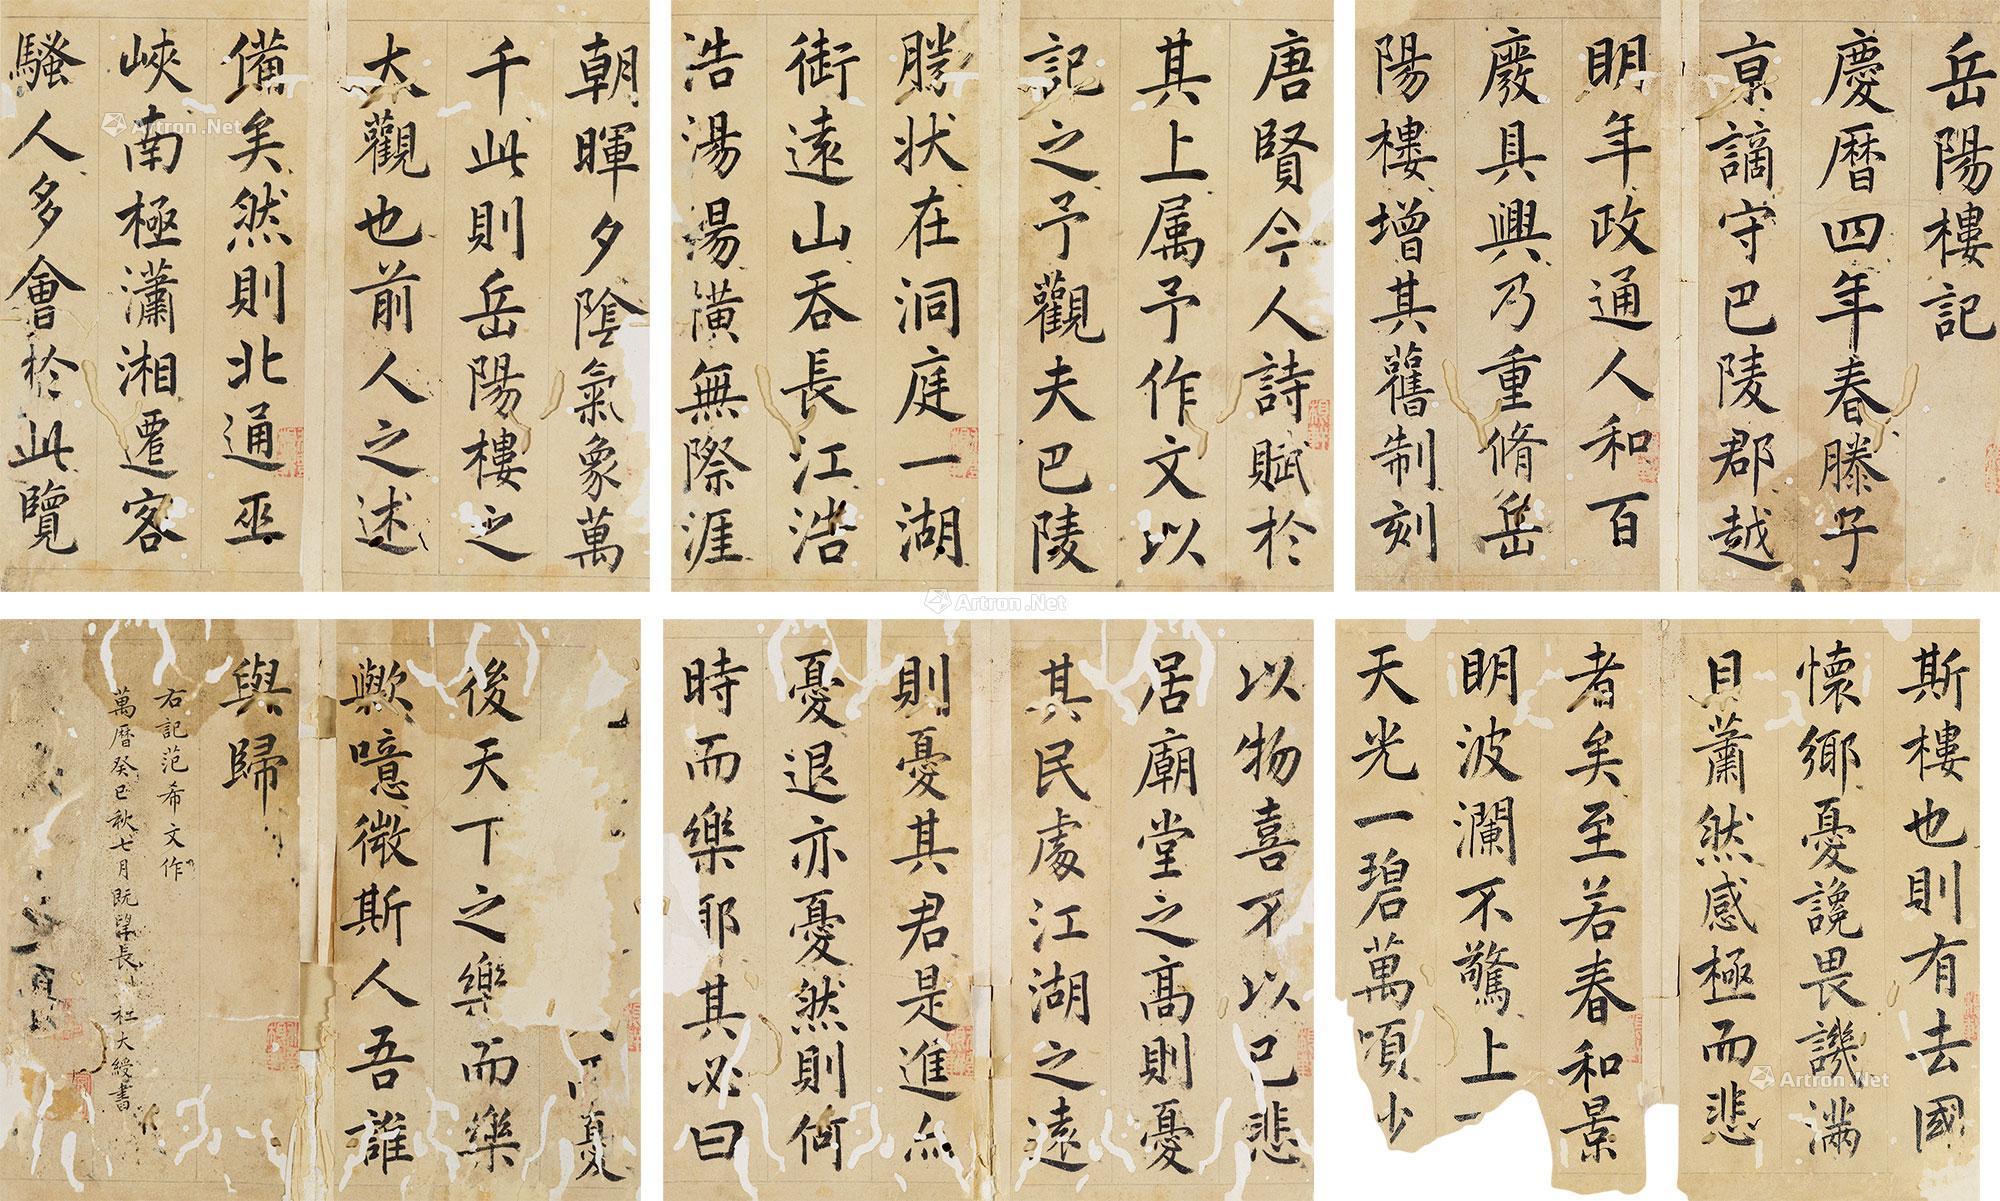 岳陽樓記
慶曆四年春滕子
京謫守巴陵郡越
明年政通人和百
廢具興乃重脩岳
陽樓增其舊制刻
唐賢今人詩賦於
其上屬予作文以
記之予觀夫巴陵
勝狀在洞庭一湖
銜遠山吞長江浩
浩湯湯橫無際涯
朝暉夕陰氣象萬
千此則岳陽樓之
大觀也前人之述
備矣然則北通巫
峽南極瀟湘遷客
騷人多會於此覽
斯樓也則有去國
懷鄉憂讒畏譏滿
目蕭然感極而悲
者矣至若春和景
明波瀾不驚上
天光一碧萬頃少
以物喜不以己悲
居廟堂之高則憂
其民處江湖之遠
則憂其君是進亦
憂退亦憂然則何
時而樂耶其必曰
憂
後天下之樂而樂
歟噫微斯人吾誰
與歸
右記范希文作
萬曆癸巳秋七月既望長洲杜大綬書
Artron.Net
Artron.Net
Artron.Net